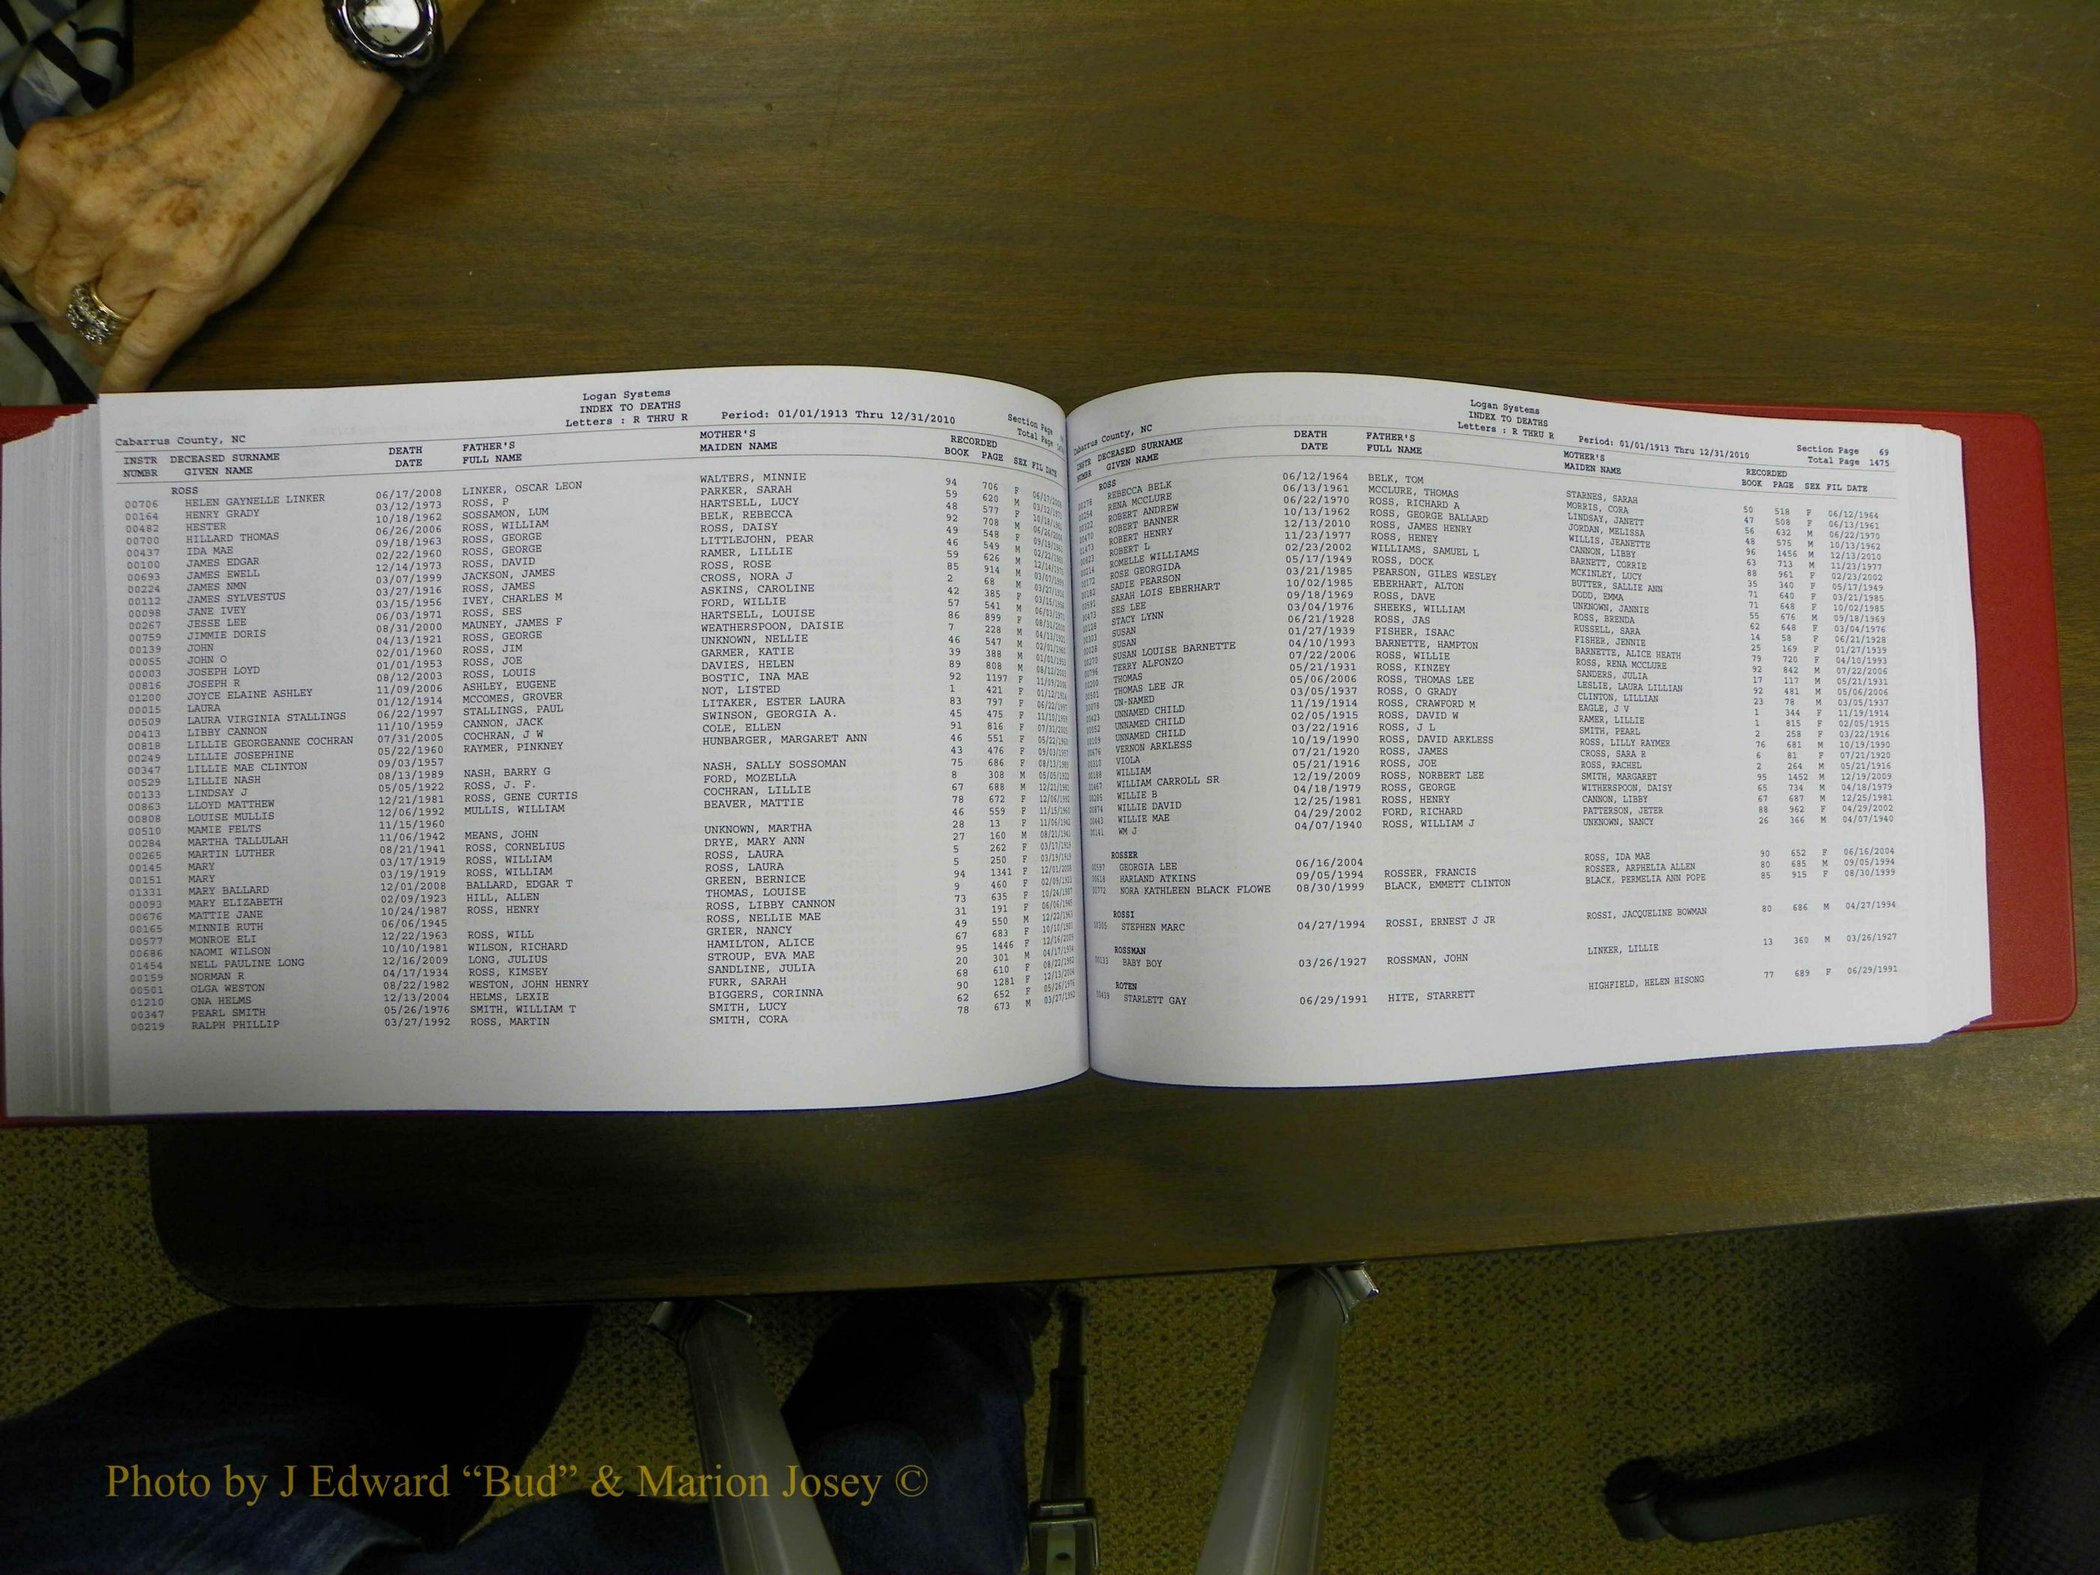 Logan Systems
INDEX TO DEATHS
Letters : R THRU R Period: 01/01/1913 Thru 12/31/2010
Cabarrus County, NC Section Page
Total Page
INSTR DECEASED SURNAME DEATH FATHER'S MOTHER'S RECORDED
NUMBR GIVEN NAME DATE FULL NAME MAIDEN NAME BOOK PAGE SEX FIL DATE
ROSS
00706 HELEN GAYNELLE LINKER 06/17/2008 LINKER, OSCAR LEON WALTERS, MINNIE 94 706 F 06/17/2008
00164 HENRY GRADY 03/12/1973 ROSS, P PARKER, SARAH 59 620 M 03/12/1973
00482 HESTER 10/18/1962 SOSSAMON, LUM HARTSELL, LUCY 48 577 F 10/18/1962
00700 HILLARD THOMAS 06/26/2006 ROSS, WILLIAM BELK, REBECCA 92 708 M 06/26/2006
00437 IDA MAE 09/18/1963 ROSS, GEORGE ROSS, DAISY 49 548 F 09/18/1963
00100 JAMES EDGAR 02/22/1960 ROSS, GEORGE LITTLEJOHN, PEAR 46 549 M 02/22/1960
00693 JAMES EWELL 12/14/1973 ROSS, DAVID RAMER, LILLIE 59 626 M 12/14/1973
00224 JAMES NMN 03/07/1999 JACKSON, JAMES ROSS, ROSE 85 914 M 03/07/1999
00112 JAMES SYLVESTUS 03/27/1916 ROSS, JAMES CROSS, NORA J 2 68 M 03/27/1916
00098 JANE IVEY 03/15/1956 IVEY, CHARLES M ASKINS, CAROLINE 42 385 F 03/15/1956
00267 JESSE LEE 06/03/1971 ROSS, SES FORD, WILLIE 57 541 M 06/03/1971
00759 JIMMIE DORIS 08/31/2000 MAUNEY, JAMES F HARTSELL, LOUISE 86 899 F 08/31/2000
00139 JOHN 04/13/1921 ROSS, GEORGE WEATHERSPOON, DAISIE 7 228 M 04/13/1921
00055 JOHN O 02/01/1960 ROSS, JIM UNKNOWN, NELLIE 46 547 M 02/01/1960
00003 JOSEPH LOYD 01/01/1953 ROSS, JOE GARMER, KATIE 39 388 M 01/01/1953
00816 JOSEPH R 08/12/2003 ROSS, LOUIS DAVIES, HELEN 89 808 M 08/12/2003
01200 JOYCE ELAINE ASHLEY 11/09/2006 ASHLEY, EUGENE BOSTIC, INA MAE 92 1197 F 11/09/2006
00015 LAURA 01/12/1914 MCCOMES, GROVER NOT, LISTED 1 421 F 01/12/1914
00509 LAURA VIRGINIA STALLINGS 06/22/1997 STALLINGS, PAUL LITAKER, ESTER LAURA 83 797 F 06/22/1997
00413 LIBBY CANNON 11/10/1959 CANNON, JACK SWINSON, GEORGIA A. 45 475 F 11/10/1959
00818 LILLIE GEORGEANNE COCHRAN 07/31/2005 COCHRAN, J W COLE, ELLEN 91 816 F 07/31/2005
00249 LILLIE JOSEPHINE 05/22/1960 RAYMER, PINKNEY HUNBARGER, MARGARET ANN 46 551 F 05/22/1960
00347 LILLIE MAE CLINTON 09/03/1957 43 476 F 09/03/1957
00529 LILLIE NASH 08/13/1989 NASH, BARRY G NASH, SALLY SOSSOMAN 75 686 F 08/13/1989
00133 LINDSAY J 05/05/1922 ROSS, J. F. FORD, MOZELLA 8 308 M 05/05/1922
00863 LLOYD MATTHEW 12/21/1981 ROSS, GENE CURTIS COCHRAN, LILLIE 67 688 M 12/21/1981
00808 LOUISE MULLIS 12/06/1992 MULLIS, WILLIAM BEAVER, MATTIE 78 672 F 12/06/1992
00510 MAMIE FELTS 11/15/1960 46 559 F 11/15/1960
00284 MARTHA TALLULAH 11/06/1942 MEANS, JOHN UNKNOWN, MARTHA 28 13 F 11/06/1942
00265 MARTIN LUTHER 08/21/1941 ROSS, CORNELIUS DRYE, MARY ANN 27 160 M 08/21/1941
00145 MARY 03/17/1919 ROSS, WILLIAM ROSS, LAURA 5 262 F 03/17/1919
00151 MARY 03/19/1919 ROSS, WILLIAM ROSS, LAURA 5 250 F 03/19/1919
01331 MARY BALLARD 12/01/2008 BALLARD, EDGAR T GREEN, BERNICE 94 1341 F 12/01/2008
00093 MARY ELIZABETH 02/09/1923 HILL, ALLEN THOMAS, LOUISE 9 460 F 02/09/1923
00676 MATTIE JANE 10/24/1987 ROSS, HENRY ROSS, LIBBY CANNON 73 635 F 10/24/1987
00165 MINNIE RUTH 06/06/1945 ROSS, NELLIE MAE 31 191 F 06/06/1945
00577 MONROE ELI 12/22/1963 ROSS, WILL GRIER, NANCY 49 550 M 12/22/1963
00686 NAOMI WILSON 10/10/1981 WILSON, RICHARD HAMILTON, ALICE 67 683 F 10/10/1981
01454 NELL PAULINE LONG 12/16/2009 LONG, JULIUS STROUP, EVA MAE 95 1446 F 12/16/2009
00159 NORMAN R 04/17/1934 ROSS, KIMSEY SANDLINE, JULIA 20 301 M 04/17/1934
00501 OLGA WESTON 08/22/1982 WESTON, JOHN HENRY FURR, SARAH 68 610 F 08/22/1982
01210 ONA HELMS 12/13/2004 HELMS, LEXIE BIGGERS, CORINNA 90 1281 F 12/13/2004
00347 PEARL SMITH 05/26/1976 SMITH, WILLIAM T SMITH, LUCY 62 652 F 05/26/1976
00219 RALPH PHILLIP 03/27/1992 ROSS, MARTIN SMITH, CORA 78 673 M 03/27/1992
Logan Systems
INDEX TO DEATHS
Letters : R THRU R Period: 01/01/1913 Thru 12/31/2010
Cabarrus County, NC Section Page 69
Total Page 1475
INSTR DECEASED SURNAME DEATH FATHER'S MOTHER'S RECORDED
NUMBR GIVEN NAME DATE FULL NAME MAIDEN NAME BOOK PAGE SEX FIL DATE
ROSS
00278 REBECCA BELK 06/12/1964 BELK, TOM STARNES, SARAH 50 518 F 06/12/1964
00254 RENA MCCLURE 06/13/1961 MCCLURE, THOMAS MORRIS, CORA 47 508 F 06/13/1961
ROBERT ANDREW 06/22/1970 ROSS, RICHARD A LINDSAY, JANETT 56 632 M 06/22/1970
00470 ROBERT BANNER 10/13/1962 ROSS, GEORGE BALLARD JORDAN, MELISSA 48 575 M 10/13/1962
01473 ROBERT HENRY 12/13/2010 ROSS, JAMES HENRY WILLIS, JEANETTE 96 1456 M 12/13/2010
ROBERT L 11/23/1977 ROSS, HENEY CANNON, LIBBY 63 713 M 11/23/1977
00214 ROMELLE WILLIAMS 02/23/2002 WILLIAMS, SAMUEL L BARNETT, CORRIE 88 961 F 02/23/2002
00172 ROSE GEORGIDA 05/17/1949 ROSS, DOCK MCKINLEY, LUCY 35 340 F 05/17/1949
SADIE PEARSON 03/21/1985 PEARSON, GILES WESLEY BUTTER, SALLIE ANN 71 640 F 03/21/1985
00591 SARAH LOIS EBERHART 10/02/1985 EBERHART, ALTON DODD, EMMA 71 648 F 10/02/1985
00473 SES LEE 09/18/1969 ROSS, DAVE UNKNOWN, JANNIE 55 676 M 09/18/1969
00128 STACY LYNN 03/04/1976 SHEEKS, WILLIAM ROSS, BRENDA 62 648 F 03/04/1976
SUSAN 06/21/1928 ROSS, JAS RUSSELL, SARA 14 58 F 06/21/1928
00028 SUSAN 01/27/1939 FISHER, ISAAC FISHER, JENNIE 25 169 F 01/27/1939
00270 SUSAN LOUISE BARNETTE 04/10/1993 BARNETTE, HAMPTON BARNETTE, ALICE HEATH 79 720 F 04/10/1993
00796 TERRY ALFONZO 07/22/2006 ROSS, WILLIE ROSS, RENA MCCLURE 92 842 M 07/22/2006
00200 THOMAS 05/21/1931 ROSS, KINZEY SANDERS, JULIA 17 117 M 05/21/1931
00501 THOMAS LEE JR 05/06/2006 ROSS, THOMAS LEE LESLIE, LAURA LILLIAN 92 481 M 05/06/2006
00078 UN-NAMED 03/05/1937 ROSS, O GRADY CLINTON, LILLIAN 23 78 M 03/05/1937
00423 UNNAMED CHILD 11/19/1914 ROSS, CRAWFORD M EAGLE, J V 1 344 F 11/19/1914
00052 UNNAMED CHILD 02/05/1915 ROSS, DAVID W RAMER, LILLIE 1 815 F 02/05/1915
00109 UNNAMED CHILD 03/22/1916 ROSS, J L SMITH, PEARL 2 258 F 03/22/1916
00676 VERNON ARKLESS 10/19/1990 ROSS, DAVID ARKLESS ROSS, LILLY RAYMER 76 681 M 10/19/1990
00310 VIOLA 07/21/1920 ROSS, JAMES CROSS, SARA R 6 81 F 07/21/1920
00188 WILLIAM 05/21/1916 ROSS, JOE ROSS, RACHEL 2 264 M 05/21/1916
01467 WILLIAM CARROLL SR 12/19/2009 ROSS, NORBERT LEE SMITH, MARGARET 95 1452 M 12/19/2009
00205 WILLIE B 04/18/1979 ROSS, GEORGE WITHERSPOON, DAISY 65 734 M 04/18/1979
00874 WILLIE DAVID 12/25/1981 ROSS, HENRY CANNON, LIBBY 67 687 M 12/25/1981
00443 WILLIE MAE 04/29/2002 FORD, RICHARD PATTERSON, JETER 88 962 F 04/29/2002
00141 WM J 04/07/1940 ROSS, WILLIAM J UNKNOWN, NANCY 26 366 M 04/07/1940
ROSSER
00597 GEORGIA LEE 06/16/2004 ROSS, IDA MAE 90 652 F 06/16/2004
00618 HARLAND ATKINS 09/05/1994 ROSSER, FRANCIS ROSSER, ARPHELIA ALLEN 80 685 M 09/05/1994
00772 NORA KATHLEEN BLACK FLOWE 08/30/1999 BLACK, EMMETT CLINTON BLACK, PERMELIA ANN POPE 85 915 F 08/30/1999
ROSSI
00305 STEPHEN MARC 04/27/1994 ROSSI, ERNEST J JR ROSSI, JACQUELINE BOWMAN 80 686 M 04/27/1994
ROSSMAN
00133 BABY BOY 03/26/1927 ROSSMAN, JOHN LINKER, LILLIE 13 360 M 03/26/1927
ROTEN
00439 STARLETT GAY 06/29/1991 HITE, STARRETT HIGHFIELD, HELEN HISONG 77 689 F 06/29/1991
Photo by J Edward “Bud” & Marion Josey ©